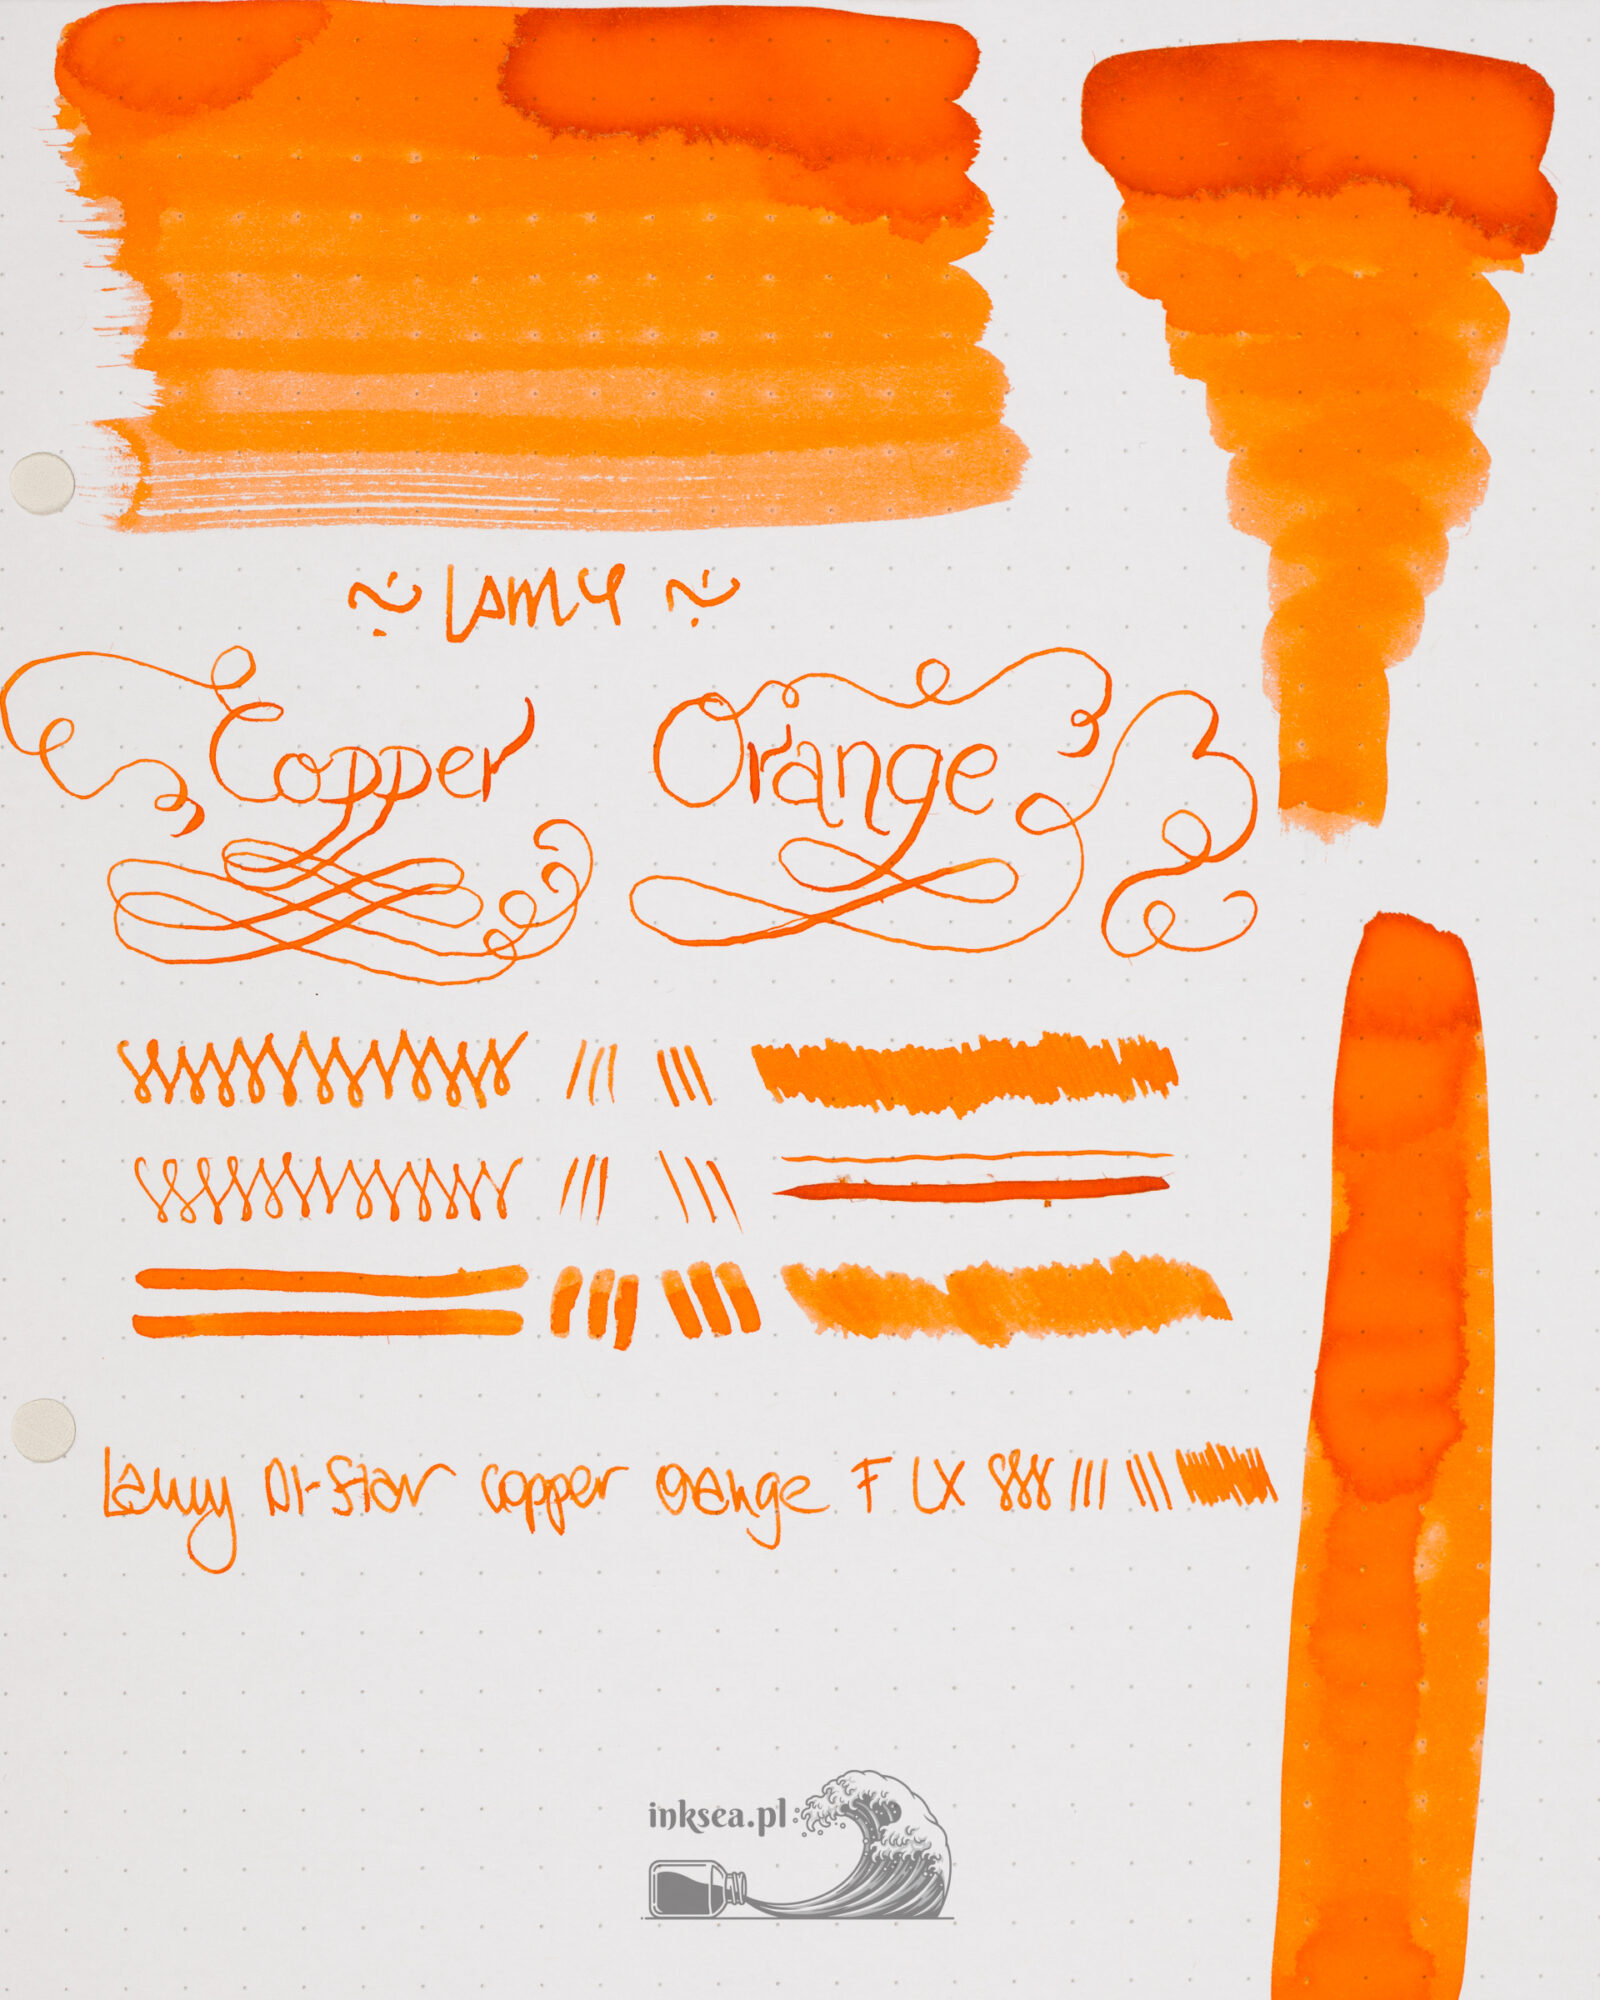 ~ Lamy ~
Copper Orange
Lamy Al-Star copper orange F LX
inksea.pl